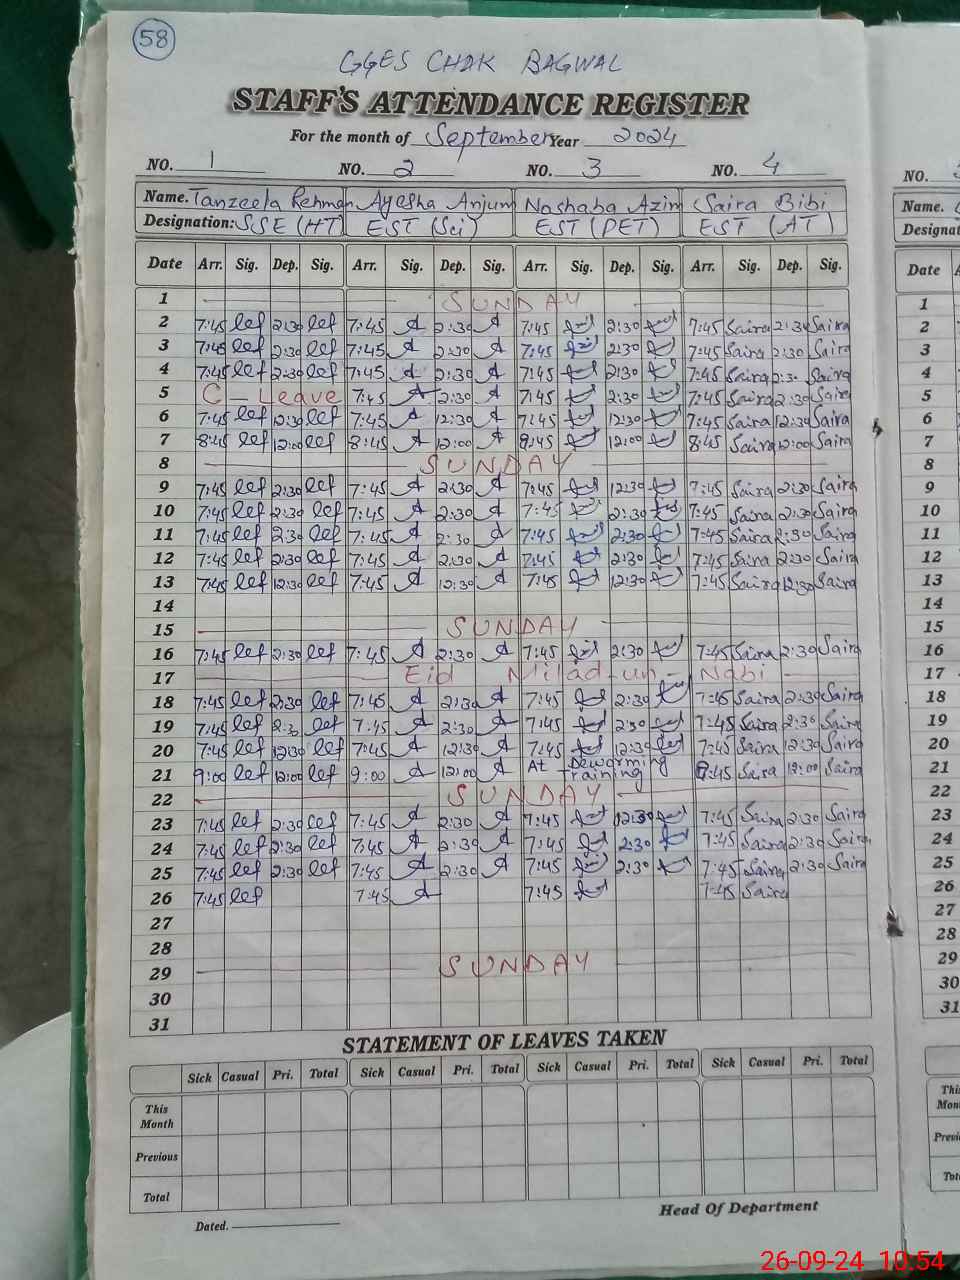 58
GGES CHAK BAGWAL
STAFF'S ATTENDANCE REGISTER
For the month of September Year 2024
NO. 1 NO. 2 NO. 3 NO. 4 NO.
Name. Tanzeela Rehman Ayesha Anjum Nashaba Azim Saira Bibi Name.
Designation: SSE (HT) EST (Sci) EST (PET) EST (AT) Designat
Date Arr. Sig. Dep. Sig. Arr. Sig. Dep. Sig. Arr. Sig. Dep. Sig. Arr. Sig. Dep. Sig. Date
1 SUNDAY 1
2 7:45 2:30 7:45 A 2:30 A 7:45 2:30 7:45 Saira 2:30 Saira 2
3 7:45 2:30 7:45 A 2:30 A 7:45 2:30 7:45 Saira 2:30 Saira 3
4 7:45 2:30 7:45 A 2:30 A 7:45 2:30 7:45 Saira 2:30 Saira 4
5 C - Leave 7:45 A 2:30 A 7:45 2:30 7:45 Saira 2:30 Saira 5
6 7:45 12:30 7:45 A 12:30 A 7:45 12:30 7:45 Saira 12:30 Saira 6
7 8:45 12:00 8:45 A 12:00 A 8:45 12:00 8:45 Saira 12:00 Saira 7
8 SUNDAY 8
9 7:45 2:30 7:45 A 2:30 A 7:45 12:30 7:45 Saira 2:30 Saira 9
10 7:45 2:30 7:45 A 2:30 A 7:45 2:30 7:45 Saira 2:30 Saira 10
11 7:45 2:30 7:45 A 2:30 A 7:45 2:30 7:45 Saira 2:30 Saira 11
12 7:45 2:30 7:45 A 2:30 A 7:45 2:30 7:45 Saira 2:30 Saira 12
13 7:45 12:30 7:45 A 12:30 A 7:45 12:30 7:45 Saira 12:30 Saira 13
14 14
15 SUNDAY 15
16 7:45 2:30 7:45 A 2:30 A 7:45 2:30 7:45 Saira 2:30 Saira 16
17 Eid Milad-un-Nabi 17
18 7:45 2:30 7:45 A 2:30 A 7:45 2:30 7:45 Saira 2:30 Saira 18
19 7:45 2:30 7:45 A 2:30 A 7:45 2:30 7:45 Saira 2:30 Saira 19
20 7:45 12:30 7:45 A 12:30 A 7:45 12:30 7:45 Saira 12:30 Saira 20
21 9:00 12:00 9:00 A 12:00 A At Deworming Training :45 Saira 12:00 Saira 21
22 SUNDAY 22
23 7:45 2:30 7:45 A 2:30 A 7:45 12:30 7:45 Saira 2:30 Saira 23
24 7:45 2:30 7:45 A 2:30 A 7:45 2:30 7:45 Saira 2:30 Saira 24
25 7:45 2:30 7:45 A 2:30 A 7:45 2:30 7:45 Saira 2:30 Saira 25
26 7:45 7:45 A 7:45 7:45 Saira 26
27 27
28 28
29 SUNDAY 29
30 30
31 31
STATEMENT OF LEAVES TAKEN
Sick Casual Pri. Total Sick Casual Pri. Total Sick Casual Pri. Total Sick Casual Pri. Total
This Month
Previous
Total
Dated.
Head Of Department
26-09-24 10:54